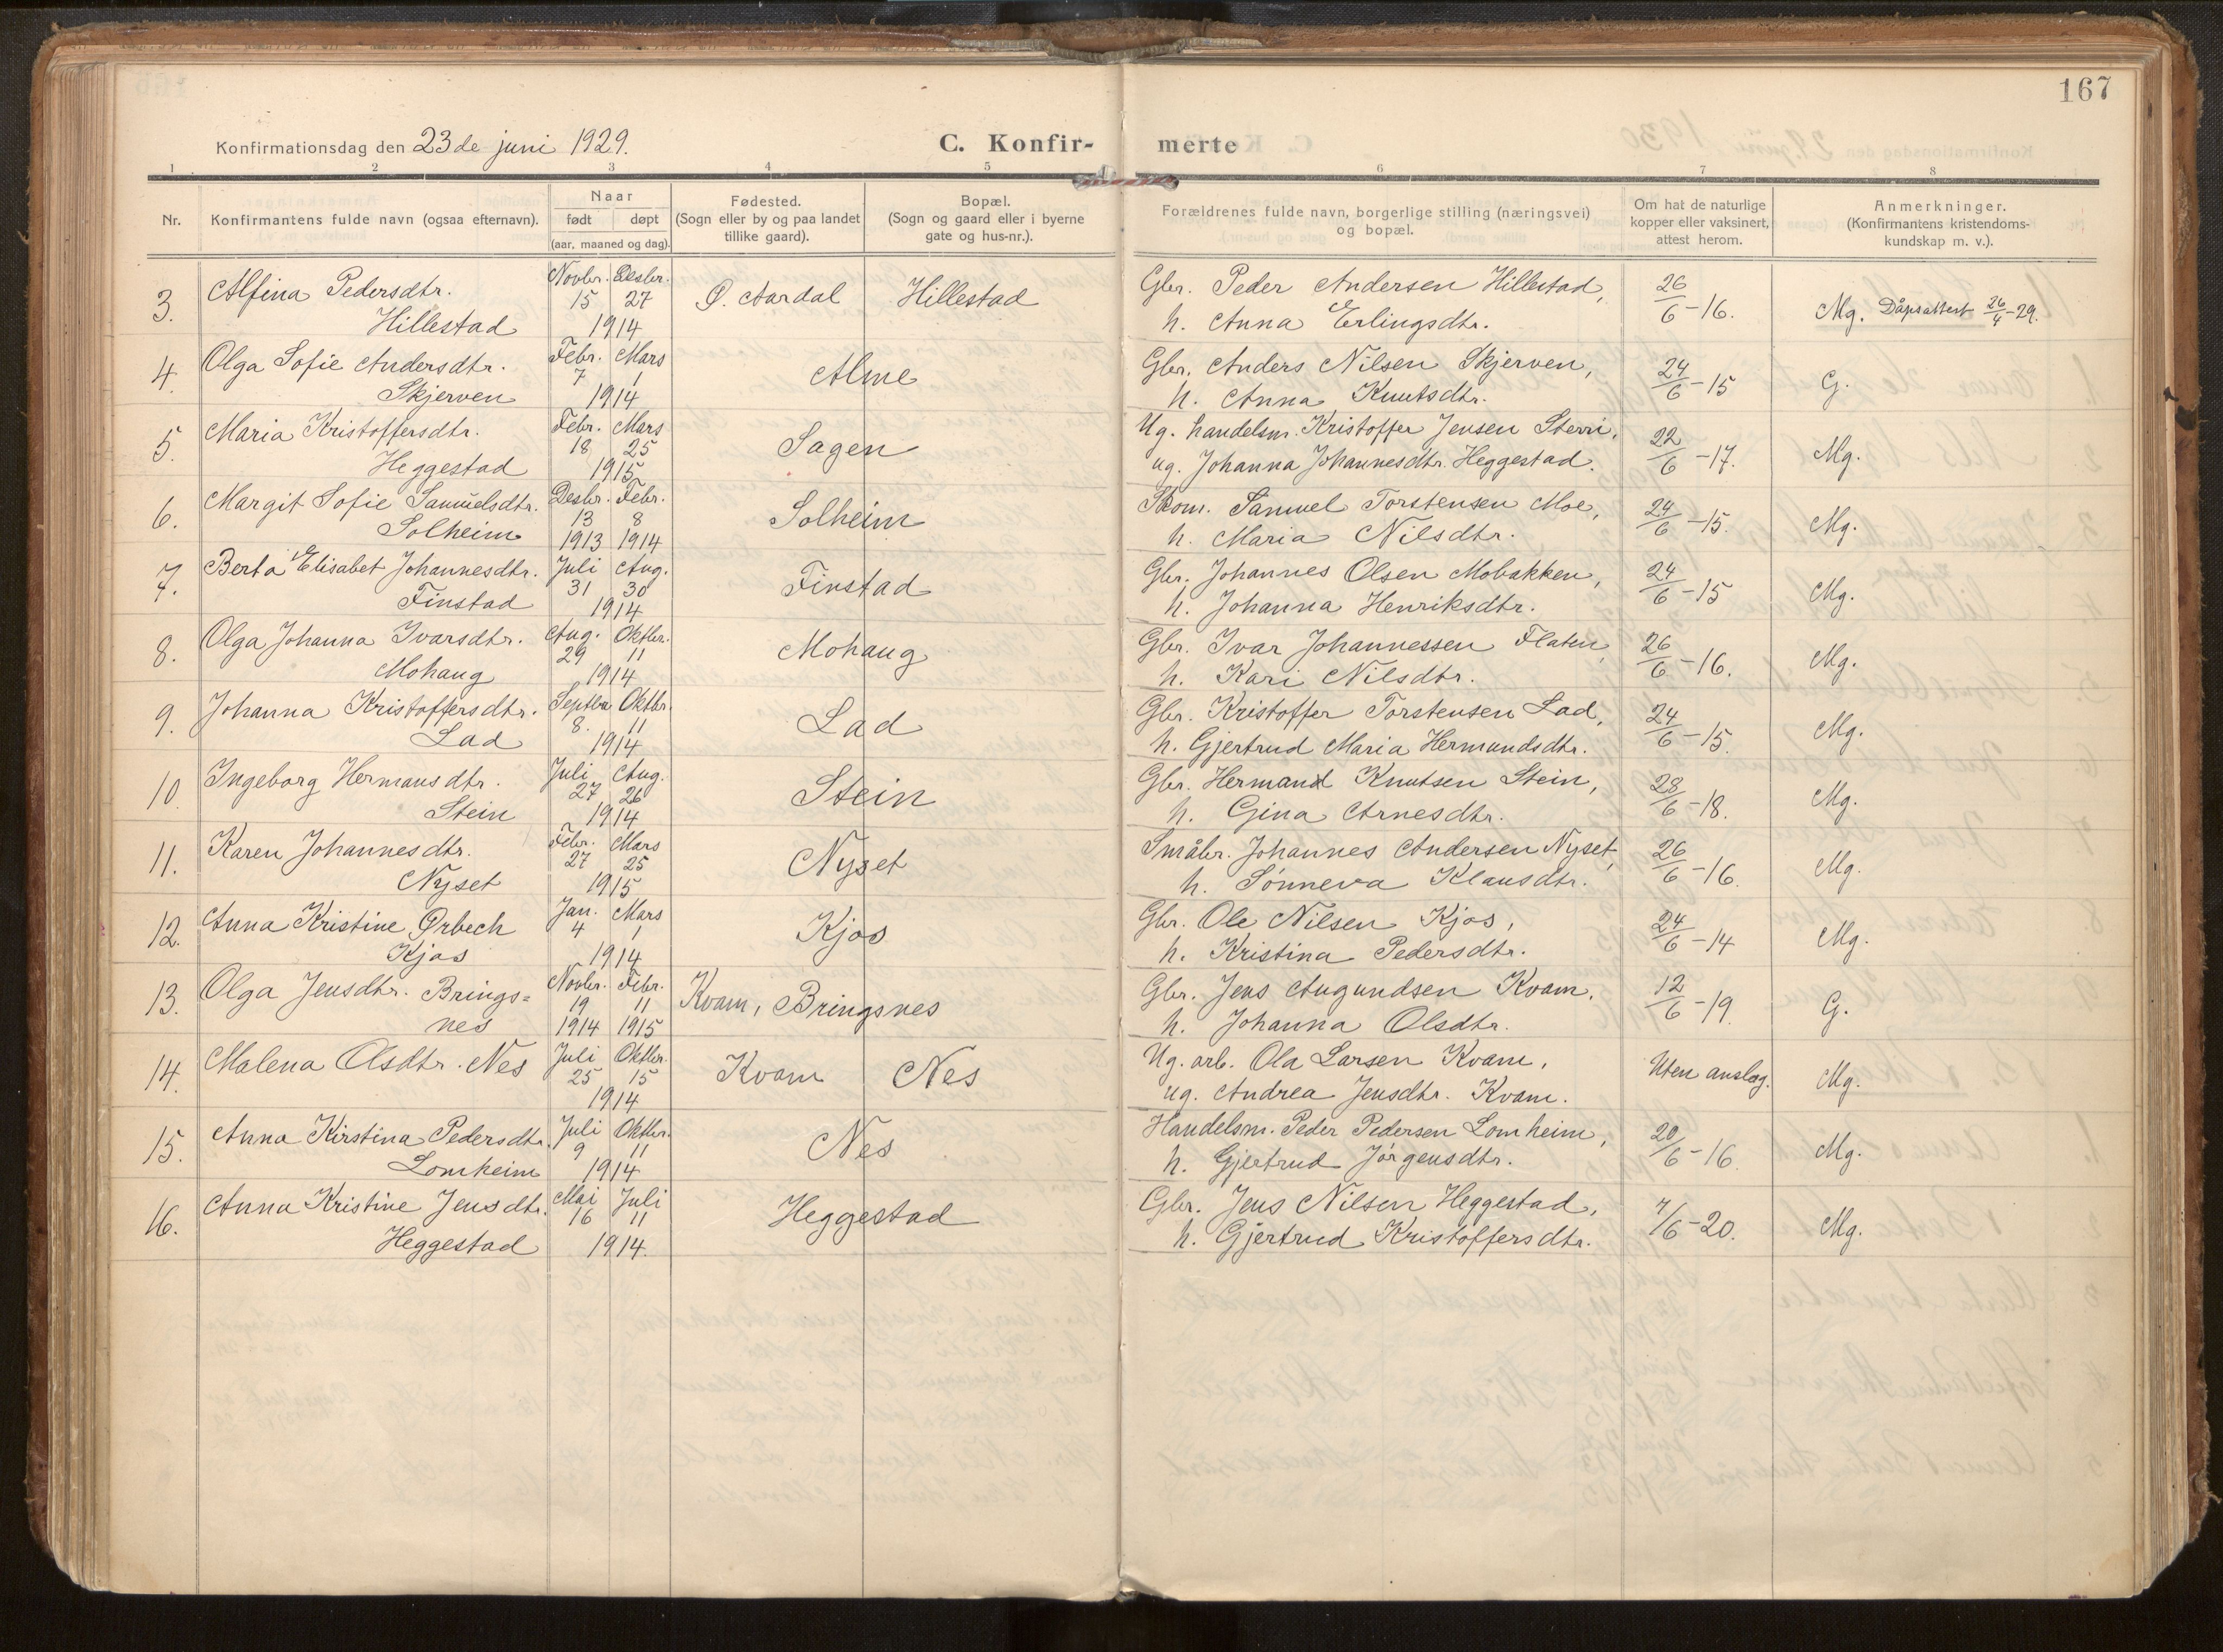 167
Konfirmationsdag den 23de juni 1929.
C. Konfir- merte
1 2 3 4 5 6 7 8
Nr.
Konfirmantens fulde navn (ogsaa efternavn).
Naar
født døpt
(aar, maaned og dag).
Fødested.
(Sogn eller by og paa landet
tillike gaard).
Bopæl.
(Sogn og gaard eller i byerne
gate og hus-nr.).
Forældrenes fulde navn, borgerlige stilling (næringsvei)
og bopæl.
Om hat de naturlige
kopper eller vaksinert,
attest herom.
Anmerkninger.
(Konfirmantens kristendoms-
kundskap m. v.).
3. Alfina Pedersdtr. Novbr. Desbr. Ø. Aardal Hillestad Gbr. Peder Andersen Hillestad, 26/6-16. Mg. Dåpsattest 26/4-29.
15 27
Hillestad 1914 h. Anna Erlingsdtr.
4. Olga Sofie Andersdtr. Febr. Mars Alme Gbr. Anders Nilsen Skjerven, 24/6-15 G.
7 1
Skjerven 1914 h. Anna Knutsdtr.
5. Maria Kristoffersdtr. Febr. Mars Sagen Ug. handelsm. Kristoffer Jensen Sterri, 22/6-17. Mg.
18 25
Heggestad 1915 ug. Johanna Johannesdtr. Heggestad.
6. Margit Sofie Samuelsdtr. Desbr. Febr. Solheim Skom. Samuel Torstensen Moe, 24/6-15. Mg.
13 8
Solheim 1913 1914 h. Maria Nilsdtr.
7. Berta Elisabet Johannesdtr. Juli Aug. Finstad Gbr. Johannes Olsen Mobakken, 24/6-15 Mg.
31 30
Finstad 1914 h. Johanna Henriksdtr.
8. Olga Johanna Ivarsdtr. Aug. Oktbr. Mohaug Gbr. Ivar Johannessen Flaten, 26/6-16. Mg.
29 11
Mohaug 1914 h. Kari Nilsdtr.
9. Johanna Kristoffersdtr. Septbr. Oktbr. Lad Gbr. Kristoffer Torstensen Lad, 24/6-15. Mg.
8. 11
Lad 1914 h. Gjertrud Maria Hermundsdtr.
10. Ingeborg Hermansdtr. Juli Aug. Stein Gbr. Hermand Knutsen Stein, 28/6-18. Mg.
27 26
Stein 1914 h. Gina Arnesdtr.
11. Karen Johannesdtr. Febr. Mars Nyset Småbr. Johannes Andersen Nyset, 26/6-16. Mg.
27 25
Nyset 1915 h. Sønneva Klausdtr.
12. Anna Kristine Ørbech Jan. Mars Kjos Gbr. Ole Nilsen Kjos, 24/6-14 Mg.
4 1
Kjos 1914 h. Kristina Pedersdtr.
13. Olga Jensdtr. Brings= Novbr. Febr. Kvam, Bringsnes Gbr. Jens Augundsen Kvam, 12/6-19. G.
19 11
nes 1914 1915 h. Johanna Olsdtr.
14. Malena Olsdtr. Nes Juli Oktbr. Kvam Nes Ug. arb. Ola Larsen Kvam, Uten anslag. Mg.
25 15
1914 ug. Andrea Jensdtr. Kvam.
15. Anna Kirstina Pedersdtr. Juli Oktbr. Nes Handelsm. Peder Pedersen Lomheim, 20/6-16. Mg.
9 11
Lomheim 1914 h. Gjertrud Jørgensdtr.
16. Anna Kristine Jensdtr. Mai Juli Heggestad Gbr. Jens Nilsen Heggestad, 4/6-20. Mg.
16 11
Heggestad 1914. h. Gjertrud Kristoffersdtr.